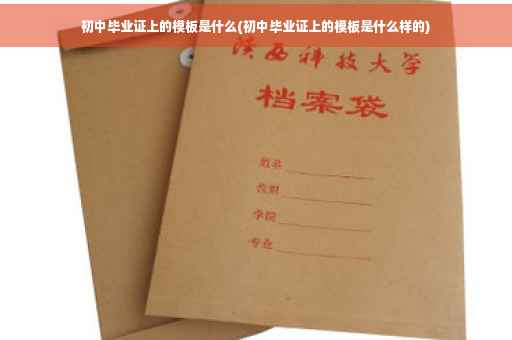 初中毕业证上的模板是什么(初中毕业证上的模板是什么样的)
陕西科技大学
档案袋
姓名
学院
专业